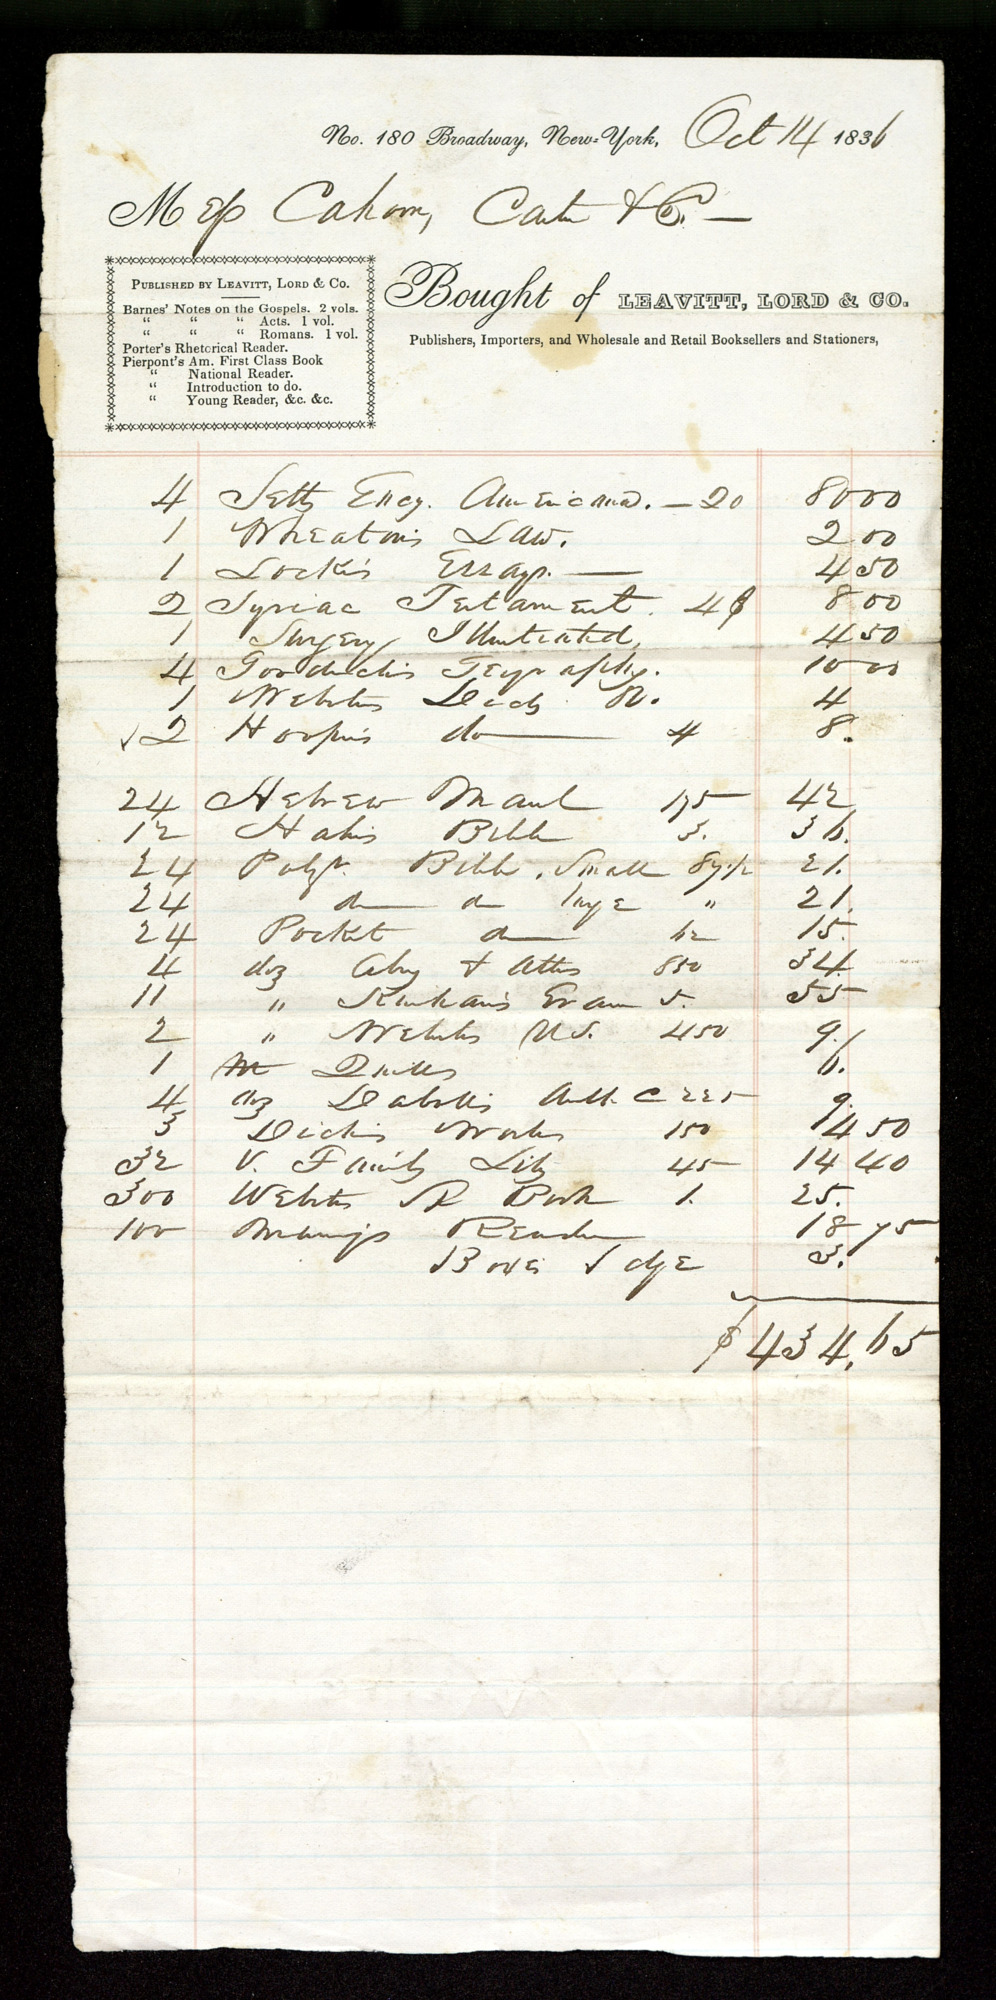 No. 180 Broadway, New-York, Oct 14 1836
Mess Cahoon, Carter & Co. —
PUBLISHED BY LEAVITT, LORD & CO.
Barnes' Notes on the Gospels. 2 vols.
“ “ “ Acts. 1 vol.
“ “ “ Romans. 1 vol.
Porter's Rhetorical Reader.
Pierpont's Am. First Class Book
“ National Reader.
“ Introduction to do.
“ Young Reader, &c. &c.
Bought of LEAVITT, LORD & CO.
Publishers, Importers, and Wholesale and Retail Booksellers and Stationers,
4 Setts Ency. Americana. — 20 80 00
1 Wheaton's Law. 2 00
1 Locke's Essays. — 4 50
2 Syriac Testament. 4$ 8 00
1 Surgery Illustrated, 4 50
4 Goodrich's Geography. 10 00
1 Websters 4
2 Hooper's do — 4 8.
24 Hebrew Manl 175 42
12 Hahn's Bible 3. 36.
24 Polyt. Bible, Small 87 1/2 21.
24 do do large " 21.
24 Pocket do 62 15.
4 doz & 850 34
11 " Kirkham's Gram 5. 55
2 " Websters 450 9.
1 M Quills 6.
4 doz 225 9.
3 Dick's Works 150 4 50
32 V. Family Liby 45 14 40
300 Websters Sp Book 1. 25.
100 Reader 18 75
Boxes 3.
$434.65